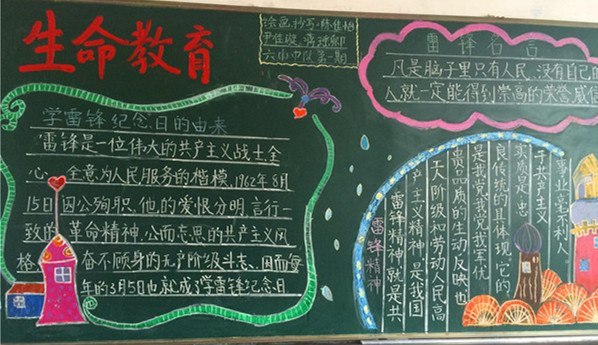 生命教育
绘画抄写:
第一期
学雷锋纪念日的由来
雷锋是一位伟大的共产主义战士,全
心全意为人民服务的楷模,1962年8月
15日因公殉职,他的爱恨分明,言行一
致的革命精神,公而忘思的共产主义风
格 奋不顾身的无产阶级斗志,因而每
年的3月5日也就成了学雷锋纪念日
雷锋名言
凡是脑子里只有人民、没有自己的
人,就一定能得到崇高的荣誉威信
雷锋精神
雷锋精神就是共
产主义精神,是我国
大阶级和劳动人民高
贵品质的生动反映也
是我党我军优
良传统的具体现,它的
实质是忠
于共产主义
事业毫不利人